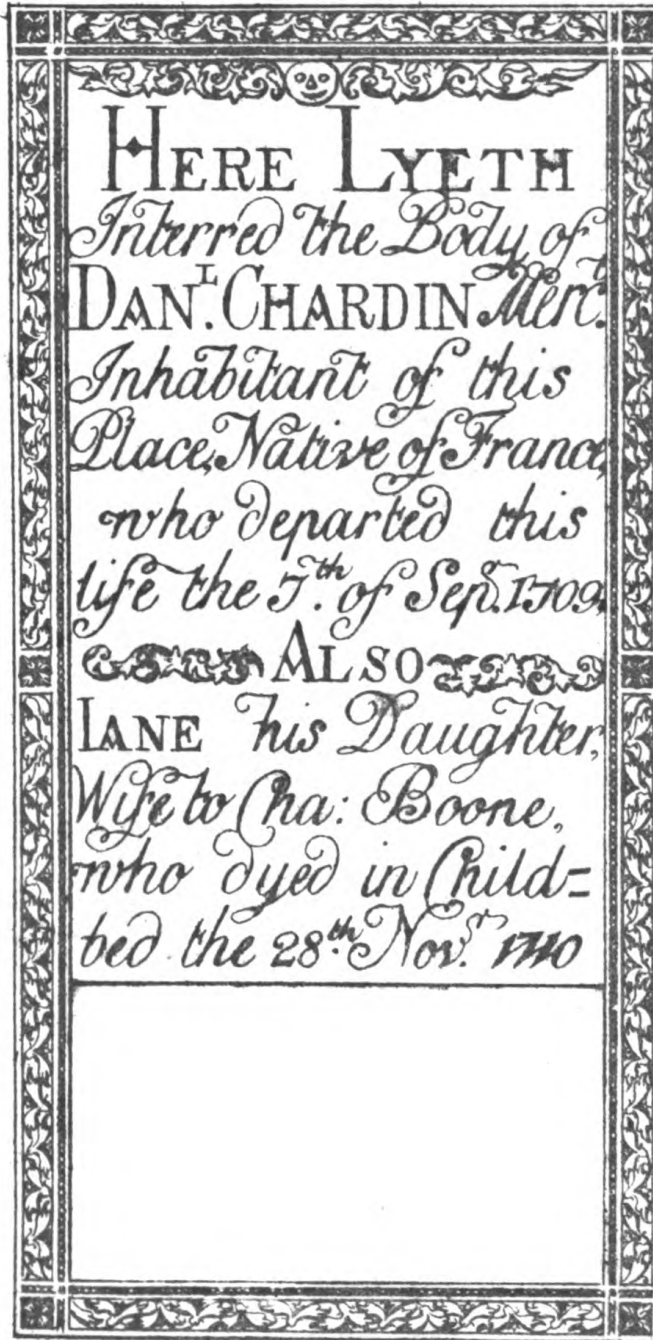 HERE LYETH
Interred the Body of
DAN.L CHARDIN Merct.
Inhabitant of this
Place, Native of France,
who departed this
life the 7.th of Sepr. 1709.
ALSO
IANE his Daughter,
Wife to Cha: Boone,
who dyed in Child=
bed the 28.th Novr. 1710